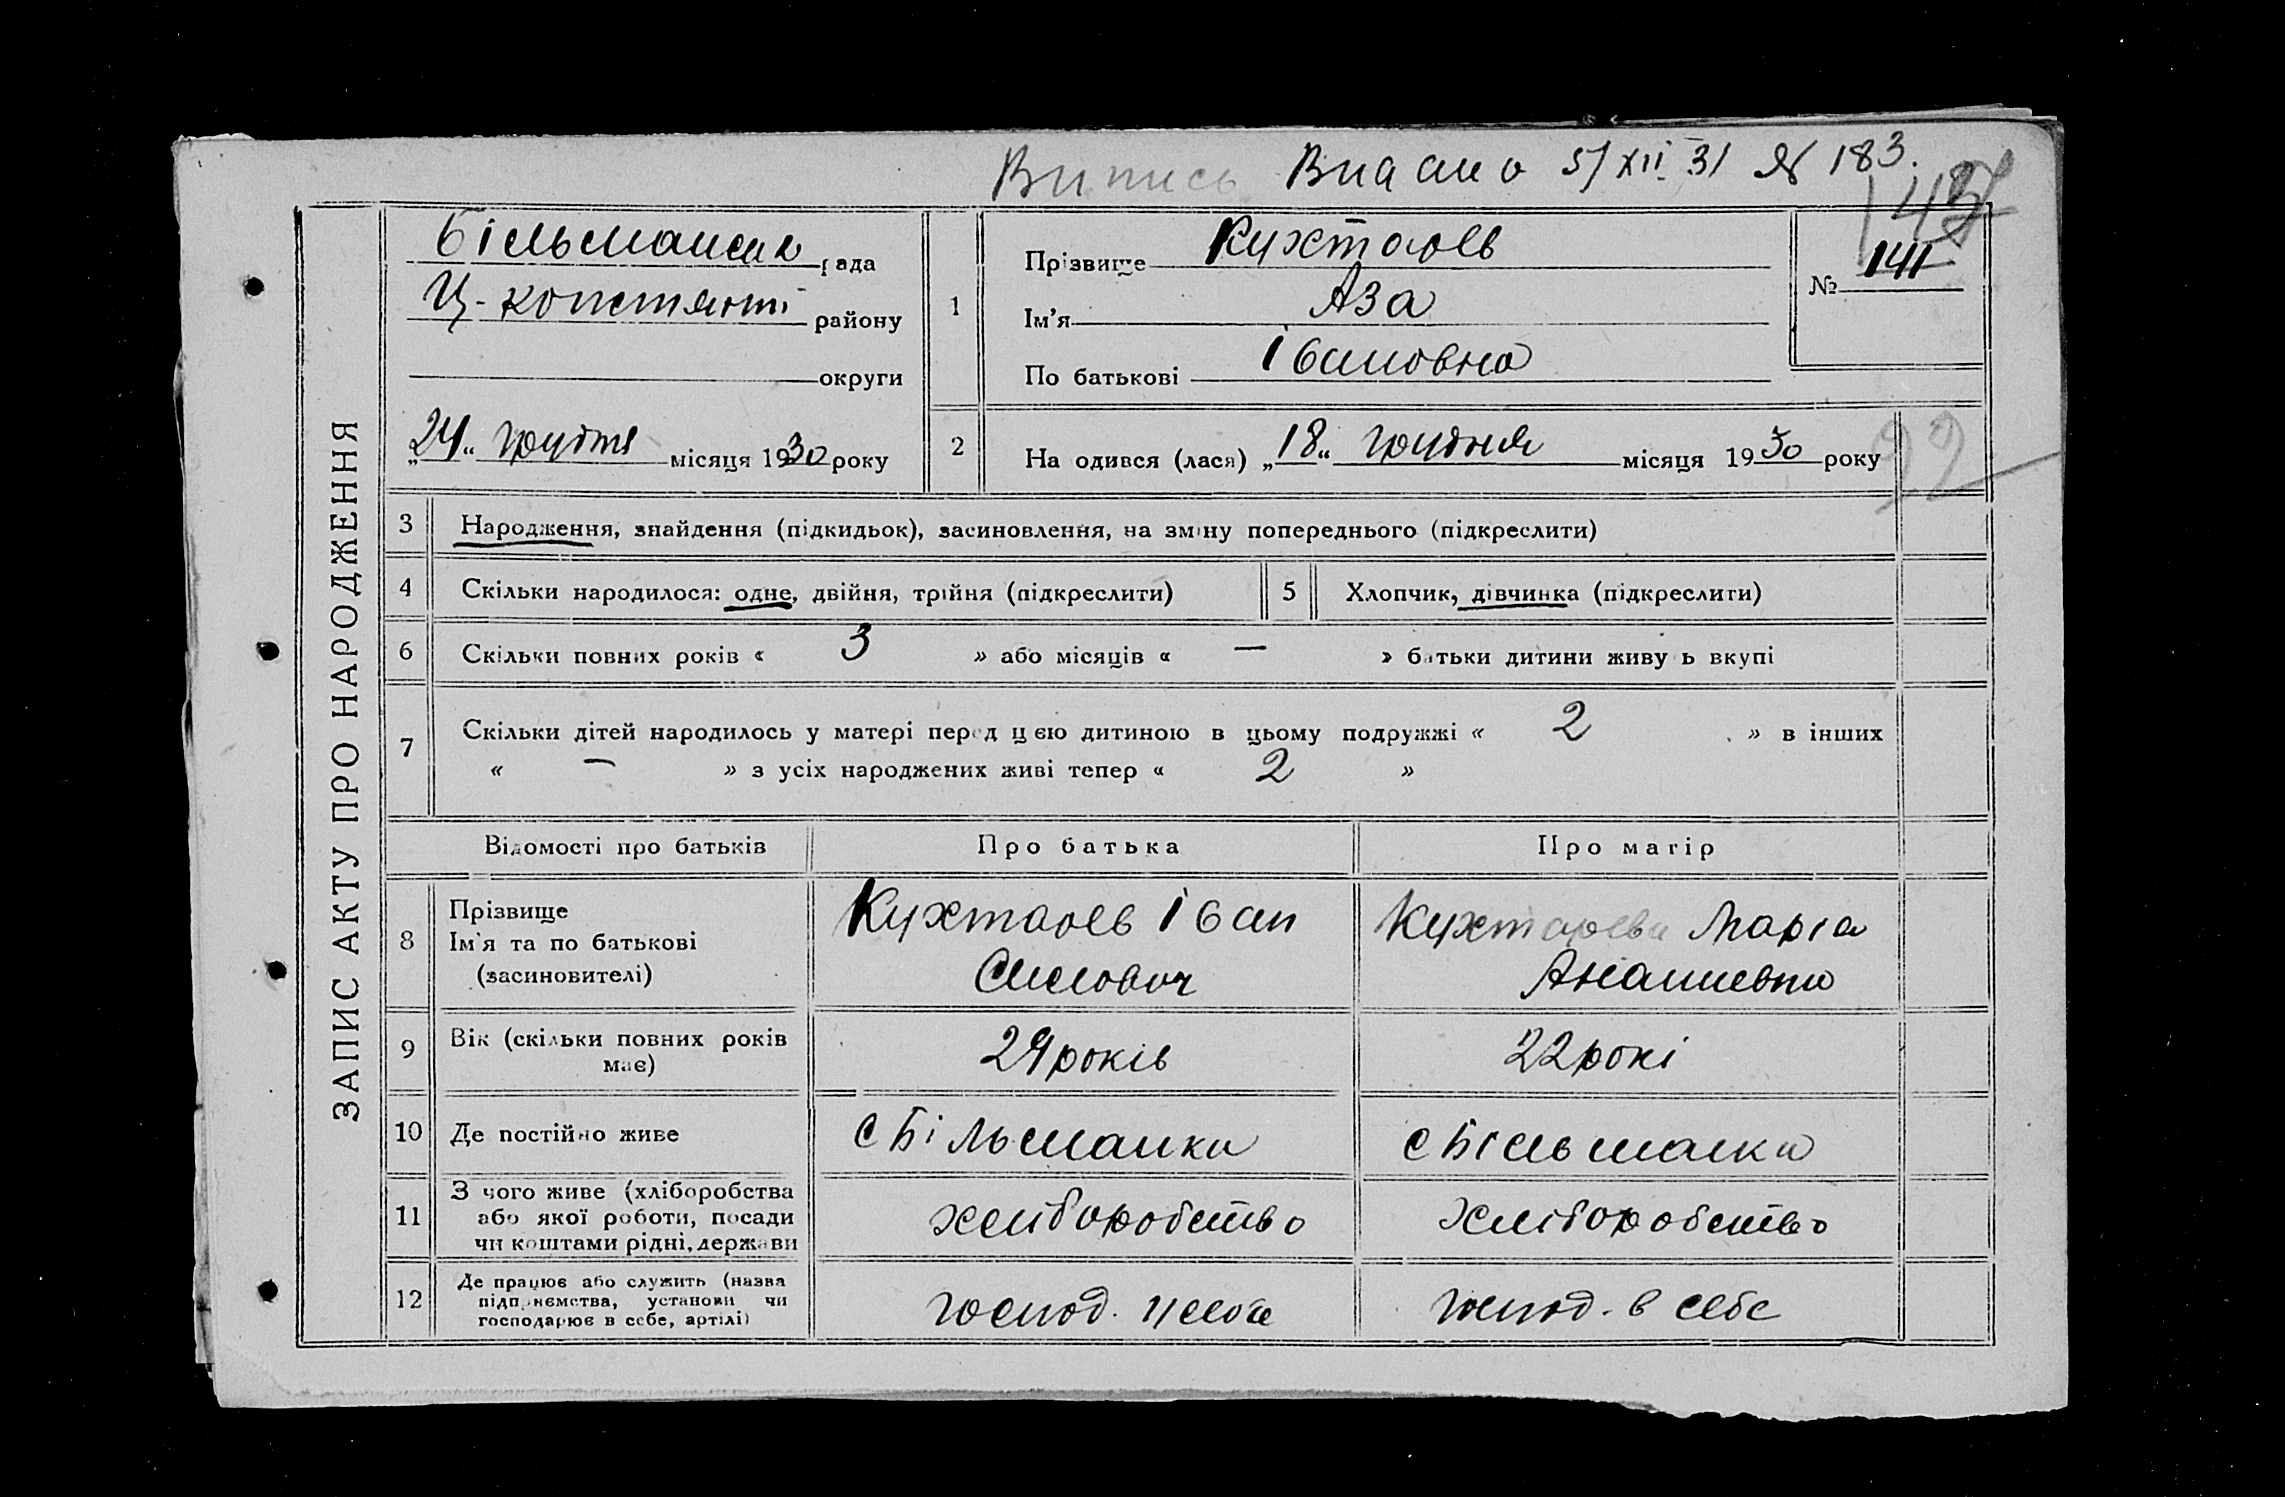 Випись Видано 5/XII 31 № 183.
Більманська рада
Ц-констянт району
округи
„24“ грудня місяця 1930 року
1
Прізвище Кухтарев
Ім’я Аза
По батькові Івановна
№ 141
2
На одився (лася) „18“ грудня місяця 1930 року
22
ЗАПИС АКТУ ПРО НАРОДЖЕННЯ
3 Народження, знайдення (підкидьок), засиновлення, на зміну попереднього (підкреслити)
4 Скільки народилося: одне, двійня, трійня (підкреслити) 5 Хлопчик, дівчинка (підкреслити)
6 Скільки повних років « 3 » або місяців « — » батьки дитини живу ь вкупі
7 Скільки дітей народилось у матері перед цею дитиною в цьому подружжі « 2 » в інших
« — » з усіх народжених живі тепер « 2 »
Відомості про батьків Про батька Про матір
8 Прізвище
Ім’я та по батькові
(засиновителі)
Кухтарев Іван
Кухтарева Марія
Ананиевна
9 Вік (скільки повних років
має)
29 років
22 рокі
10 Де постійно живе с Більманка с Більманка
11 З чого живе (хліборобства
або якої роботи, посади
чи коштами рідні, держави
хліборобство хліборобство
12 Де працює або служить (назва
підприємства, установи чи
господарює в себе, артілі)
господ. у себе господ. в себе